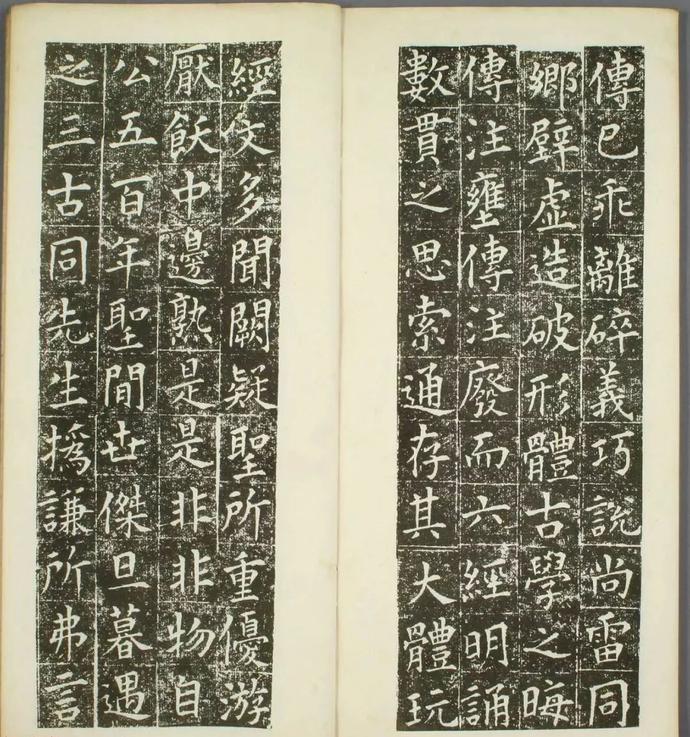 傳已乖離碎義巧說尚雷同
鄉壁虛造破形體古學之晦
傳注壅傳注廢而六經明誦
數貫之思索通存其大體玩
經文多聞闕疑聖所重優游
厭飫中邊熟是是非非物自
公五百年聖間世傑旦暮遇
之三古同先生撝謙所弗言